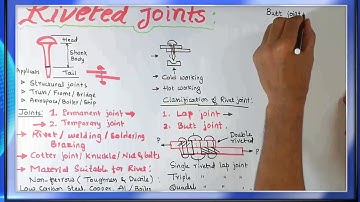 Riveted Joints:
Head
Shank
Body
Tail
Applicatn
> Structural joints
> Truss/Frame/Bridge
> Aerospace/Boiler/Ship
Joints: 1. Permanent joint
2. Temporary joint
Rivet/Welding/Soldering
Brazing
Cotter joint/Knuckle/Nut & bolts
Material Suitable for Rivet:
Non-ferrous (Toughness & Ductile)
Low Carbon Steel, Copper, Al/Boiler
Cold working
Hot working
Classification of Rivet joint:
1. Lap joint
2. Butt joint.
Double
riveted
P
P
Single riveted lap joint
Triple " " "
Butt joint